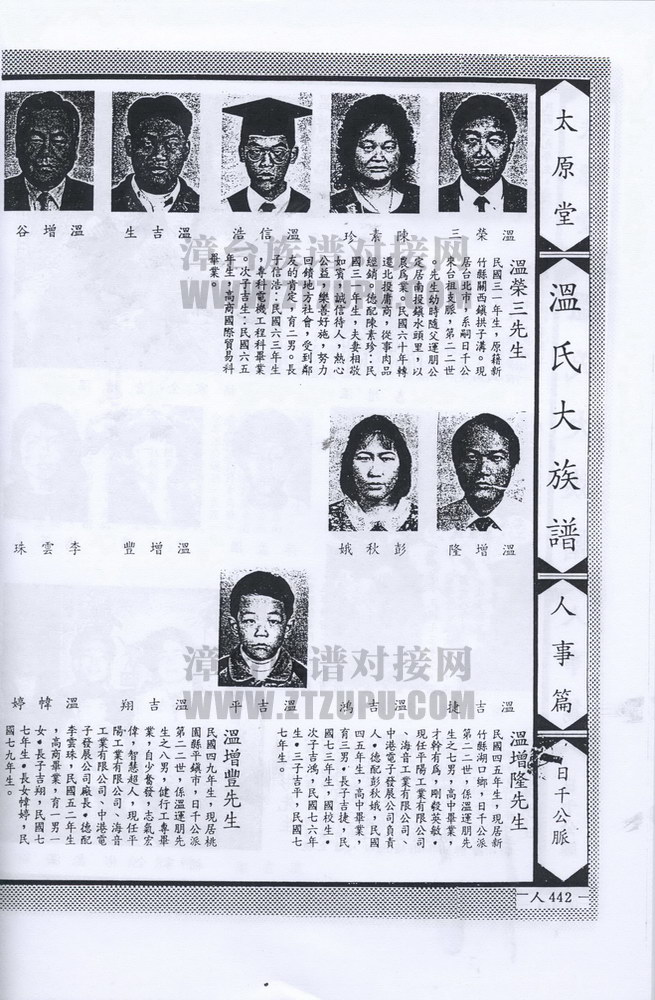 太原堂
溫氏大族譜
人事篇
日千公脈
人 442
溫榮三
陳素珍
溫信浩
溫吉生
溫增谷
溫榮三先生
民國三一年生，原籍新
竹縣關西鎮拱子溝。現
居台北市，系嗣日千公
來台祖支脈，第二二世
。先生幼時隨父運朋公
定居南投鎮水頭里，以
農爲業。民國六十年轉
遷北投庸商，從事肉品
經銷。德配陳素珍：民
國三一年生，夫妻相敬
如賓，誠信待人，熱心
公益，樂善好施，努力
回饋地方社會，受到鄰
友的肯定，育二男。長
子信浩：民國六三年生
，專科電機工程科畢業
。次子吉生：民國六五
年生，高商國際貿易科
畢業。
溫增隆
彭秋娥
溫增豐
李雲珠
溫吉捷
溫吉鴻
溫吉平
溫吉翔
溫幃婷
溫增隆先生
民國四五年生，現居新
竹縣湖口鄉，日千公派
第二二世，係溫運朋先
生之七男，高中畢業，
才幹有爲，剛毅英敏。
現任平陽工業有限公司
、海音工業有限公司、
中港電子發展公司負責
人。德配彭秋娥，民國
四五年生，高中畢業，
育三男。長子吉捷，民
國七三年生，國校生。
次子吉鴻，民國七六年
生。三子吉平，民國七
七年生。
溫增豐先生
民國四九年生，現居桃
園縣平鎮市，日千公派
第二二世，係溫運朋先
生之八男，健行工專畢
業，自少奮發，志氣宏
偉，智慧超人，現任平
陽工業有限公司、海音
工業有限公司、中港電
子發展公司廠長。德配
李雲珠，民國五二年生
，高商畢業，育一男一
女。長子吉翔，民國七
七年生。長女幃婷，民
國七九年生。
漳台族谱对接网
WWW.ZTZUPU.COM
漳台族谱对接网
WWW.ZTZUPU.COM